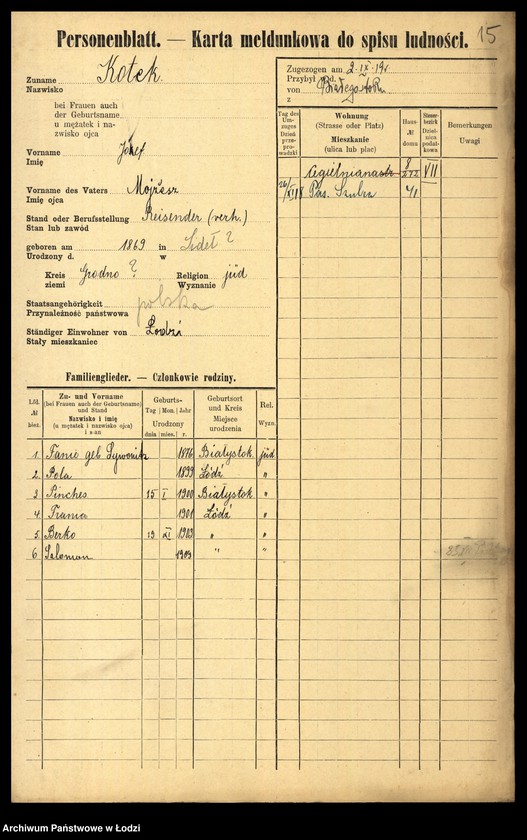 15
Personenblatt. — Karta meldunkowa do spisu ludności.
Zuname Kotek
Nazwisko
bei Frauen auch
der Geburtsname
u mężatek i na-
zwisko ojca
Vorname Józef
Imię
Vorname des Vaters Mojżesz
Imię ojca
Stand oder Berufsstellung Reisender (verh.)
Stan lub zawód
geboren am 1869 in Sidel ?
Urodzony d. w
Kreis Grodno ? Religion jüd
ziemi Wyznanie
Staatsangehörigkeit polska
Przynaleźność państwowa
Ständiger Einwohner von Łodzi
Stały mieszkaniec
Zugezogen am 2-IX-19 r.
Przybył w d.
von Białegostoku
z
Tag des Um-zuges Dzień prze-prowadzki
Wohnung
(Strasse oder Platz)
Mieszkanie
(ulica lub plac)
Haus-
№
domu
Steuer-
bezirk
Dziel-
nica
podat-
kowa
Bemerkungen
Uwagi
Cegielnianastr 8/272 VII
Pas. Szulca 41
Familienglieder. — Członkowie rodziny.
Lfd.
№
bież.
Zu- und Vorname
(bei Frauen auch der Geburtsname)
und Stand
Nazwisko i imię
(u mężatek i nazwisko ojca)
i stan
Geburts-
Tag Mon. Jahr
Urodzony
dnia mies. r.
Geburtsort
und Kreis
Miejsce
urodzenia
Rel.
Wyzn.
1. Fanie geb. 1876 Białystok jüd
2. Pola 1899 Łódź "
3 Pinches 15 I 1900 Białystok "
4. Frania 1901 Łódź "
5. Berko 19 XI 1903 " "
6 Salomon 1909 " "
Archiwum Państwowe w Łodzi